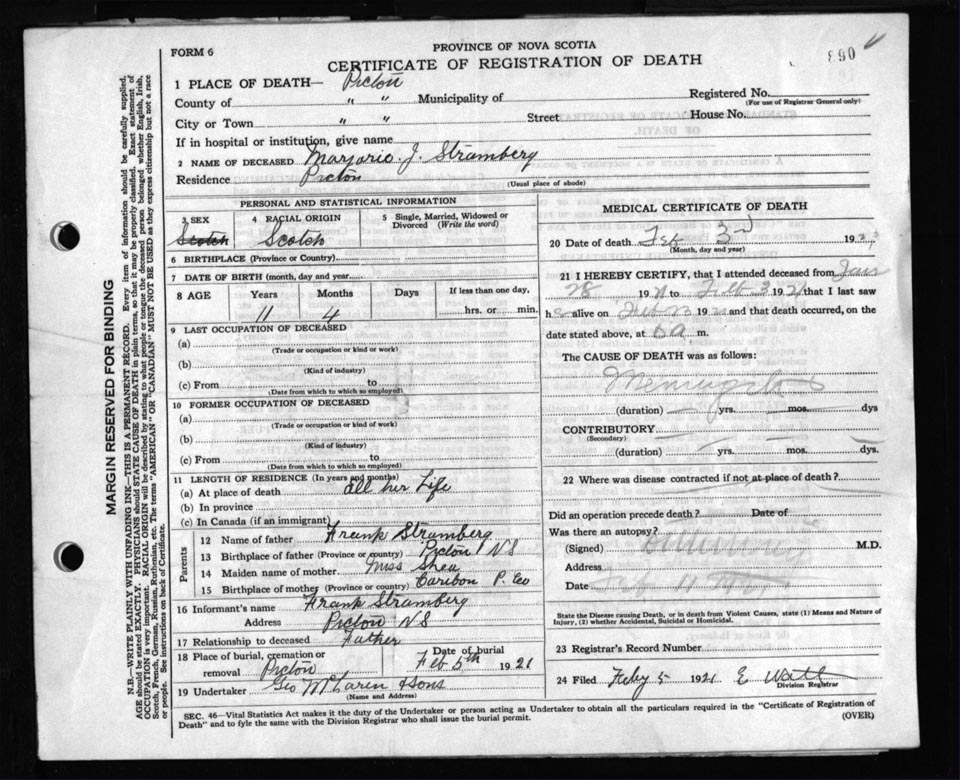 FORM 6
PROVINCE OF NOVA SCOTIA
CERTIFICATE OF REGISTRATION OF DEATH
890
1 PLACE OF DEATH— Pictou
County of " " Municipality of
Registered No.
(For use of Registrar General only)
City or Town " " Street House No.
If in hospital or institution, give name
2 NAME OF DECEASED Marjorie J. Stramberg
Residence Pictou
(Usual place of abode)
PERSONAL AND STATISTICAL INFORMATION
3 SEX 4 RACIAL ORIGIN 5 Single, Married, Widowed or Divorced (Write the word)
Scotch Scotch
6 BIRTHPLACE (Province or Country)
7 DATE OF BIRTH (month, day and year)
8 AGE Years Months Days If less than one day,
11 4 hrs. or min.
9 LAST OCCUPATION OF DECEASED
(a)
(Trade or occupation or kind of work)
(b)
(Kind of industry)
(c) From to
(Date from which to which so employed)
10 FORMER OCCUPATION OF DECEASED
(a)
(Trade or occupation or kind of work)
(b)
(Kind of industry)
(c) From to
(Date from which to which so employed)
11 LENGTH OF RESIDENCE (In years and months)
(a) At place of death all her Life
(b) In province
(c) In Canada (if an immigrant)
Parents
12 Name of father Frank Stramberg
13 Birthplace of father (Province or country) Pictou NS
14 Maiden name of mother Miss Shea
15 Birthplace of mother (Province or country) Caribou P. Co
16 Informant's name Frank Stramberg
Address Pictou NS
17 Relationship to deceased Father
18 Place of burial, cremation or removal Pictou
Date of burial Feb 5th 1921
19 Undertaker Geo McLaren & Sons
(Name and Address)
MEDICAL CERTIFICATE OF DEATH
20 Date of death Feb 3rd 192
(Month, day and year)
21 I HEREBY CERTIFY, that I attended deceased from Jan
28 1921 to Feb 3 1921 that I last saw
h alive on Feb 3 1921 and that death occurred, on the
date stated above, at 6 a m.
The CAUSE OF DEATH was as follows:
Meningitis
(duration) yrs. mos. dys
CONTRIBUTORY
(Secondary)
(duration) yrs. mos. dys.
22 Where was disease contracted if not at place of death?
Did an operation precede death? Date of
Was there an autopsy?
(Signed) M.D.
Address
Date
State the Disease causing Death, or in death from Violent Causes, state (1) Means and Nature of Injury, (2) whether Accidental, Suicidal or Homicidal.
23 Registrar's Record Number
24 Filed Feby 5 1921 E
Division Registrar
SEC. 46—Vital Statistics Act makes it the duty of the Undertaker or person acting as Undertaker to obtain all the particulars required in the "Certificate of Registration of
Death" and to fyle the same with the Division Registrar who shall issue the burial permit. (OVER)
MARGIN RESERVED FOR BINDING
N.B.—WRITE PLAINLY, WITH UNFADING INK—THIS IS A PERMANENT RECORD. Every item of information should be carefully supplied.
AGE should be stated EXACTLY. PHYSICIANS should STATE CAUSE OF DEATH in plain terms, so that it may be properly classified. Exact statement of
OCCUPATION is very important. RACIAL ORIGIN will be described by stating to what people or tongue the deceased person belonged whether English, Irish,
Scotch, French, German, Russian, Ruthenian, etc. The terms "AMERICAN" OR "CANADIAN" MUST NOT BE USED as they express citizenship but not a race
or people. See instructions on back of Certificate.